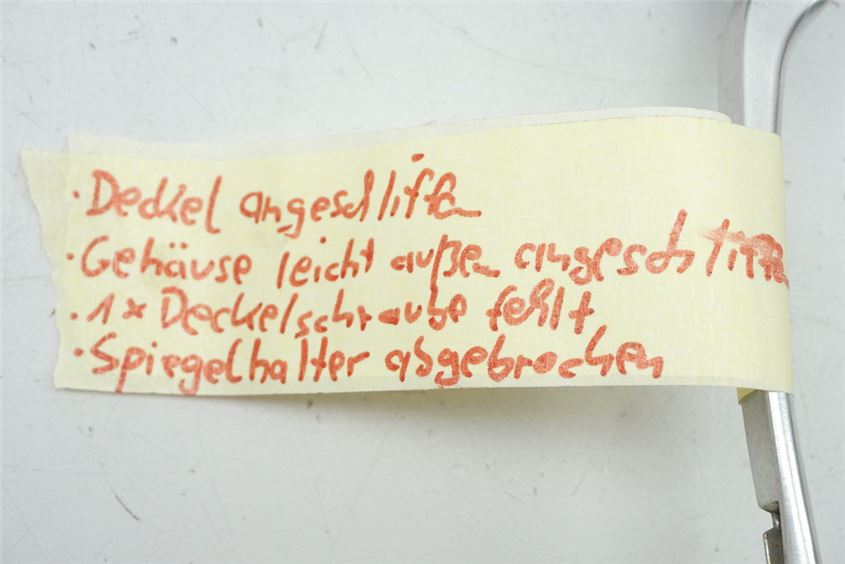 · Deckel angeschliffen
· Gehäuse leicht außen angeschliffen
· 1x Deckelschraube fehlt
· Spiegelhalter abgebrochen